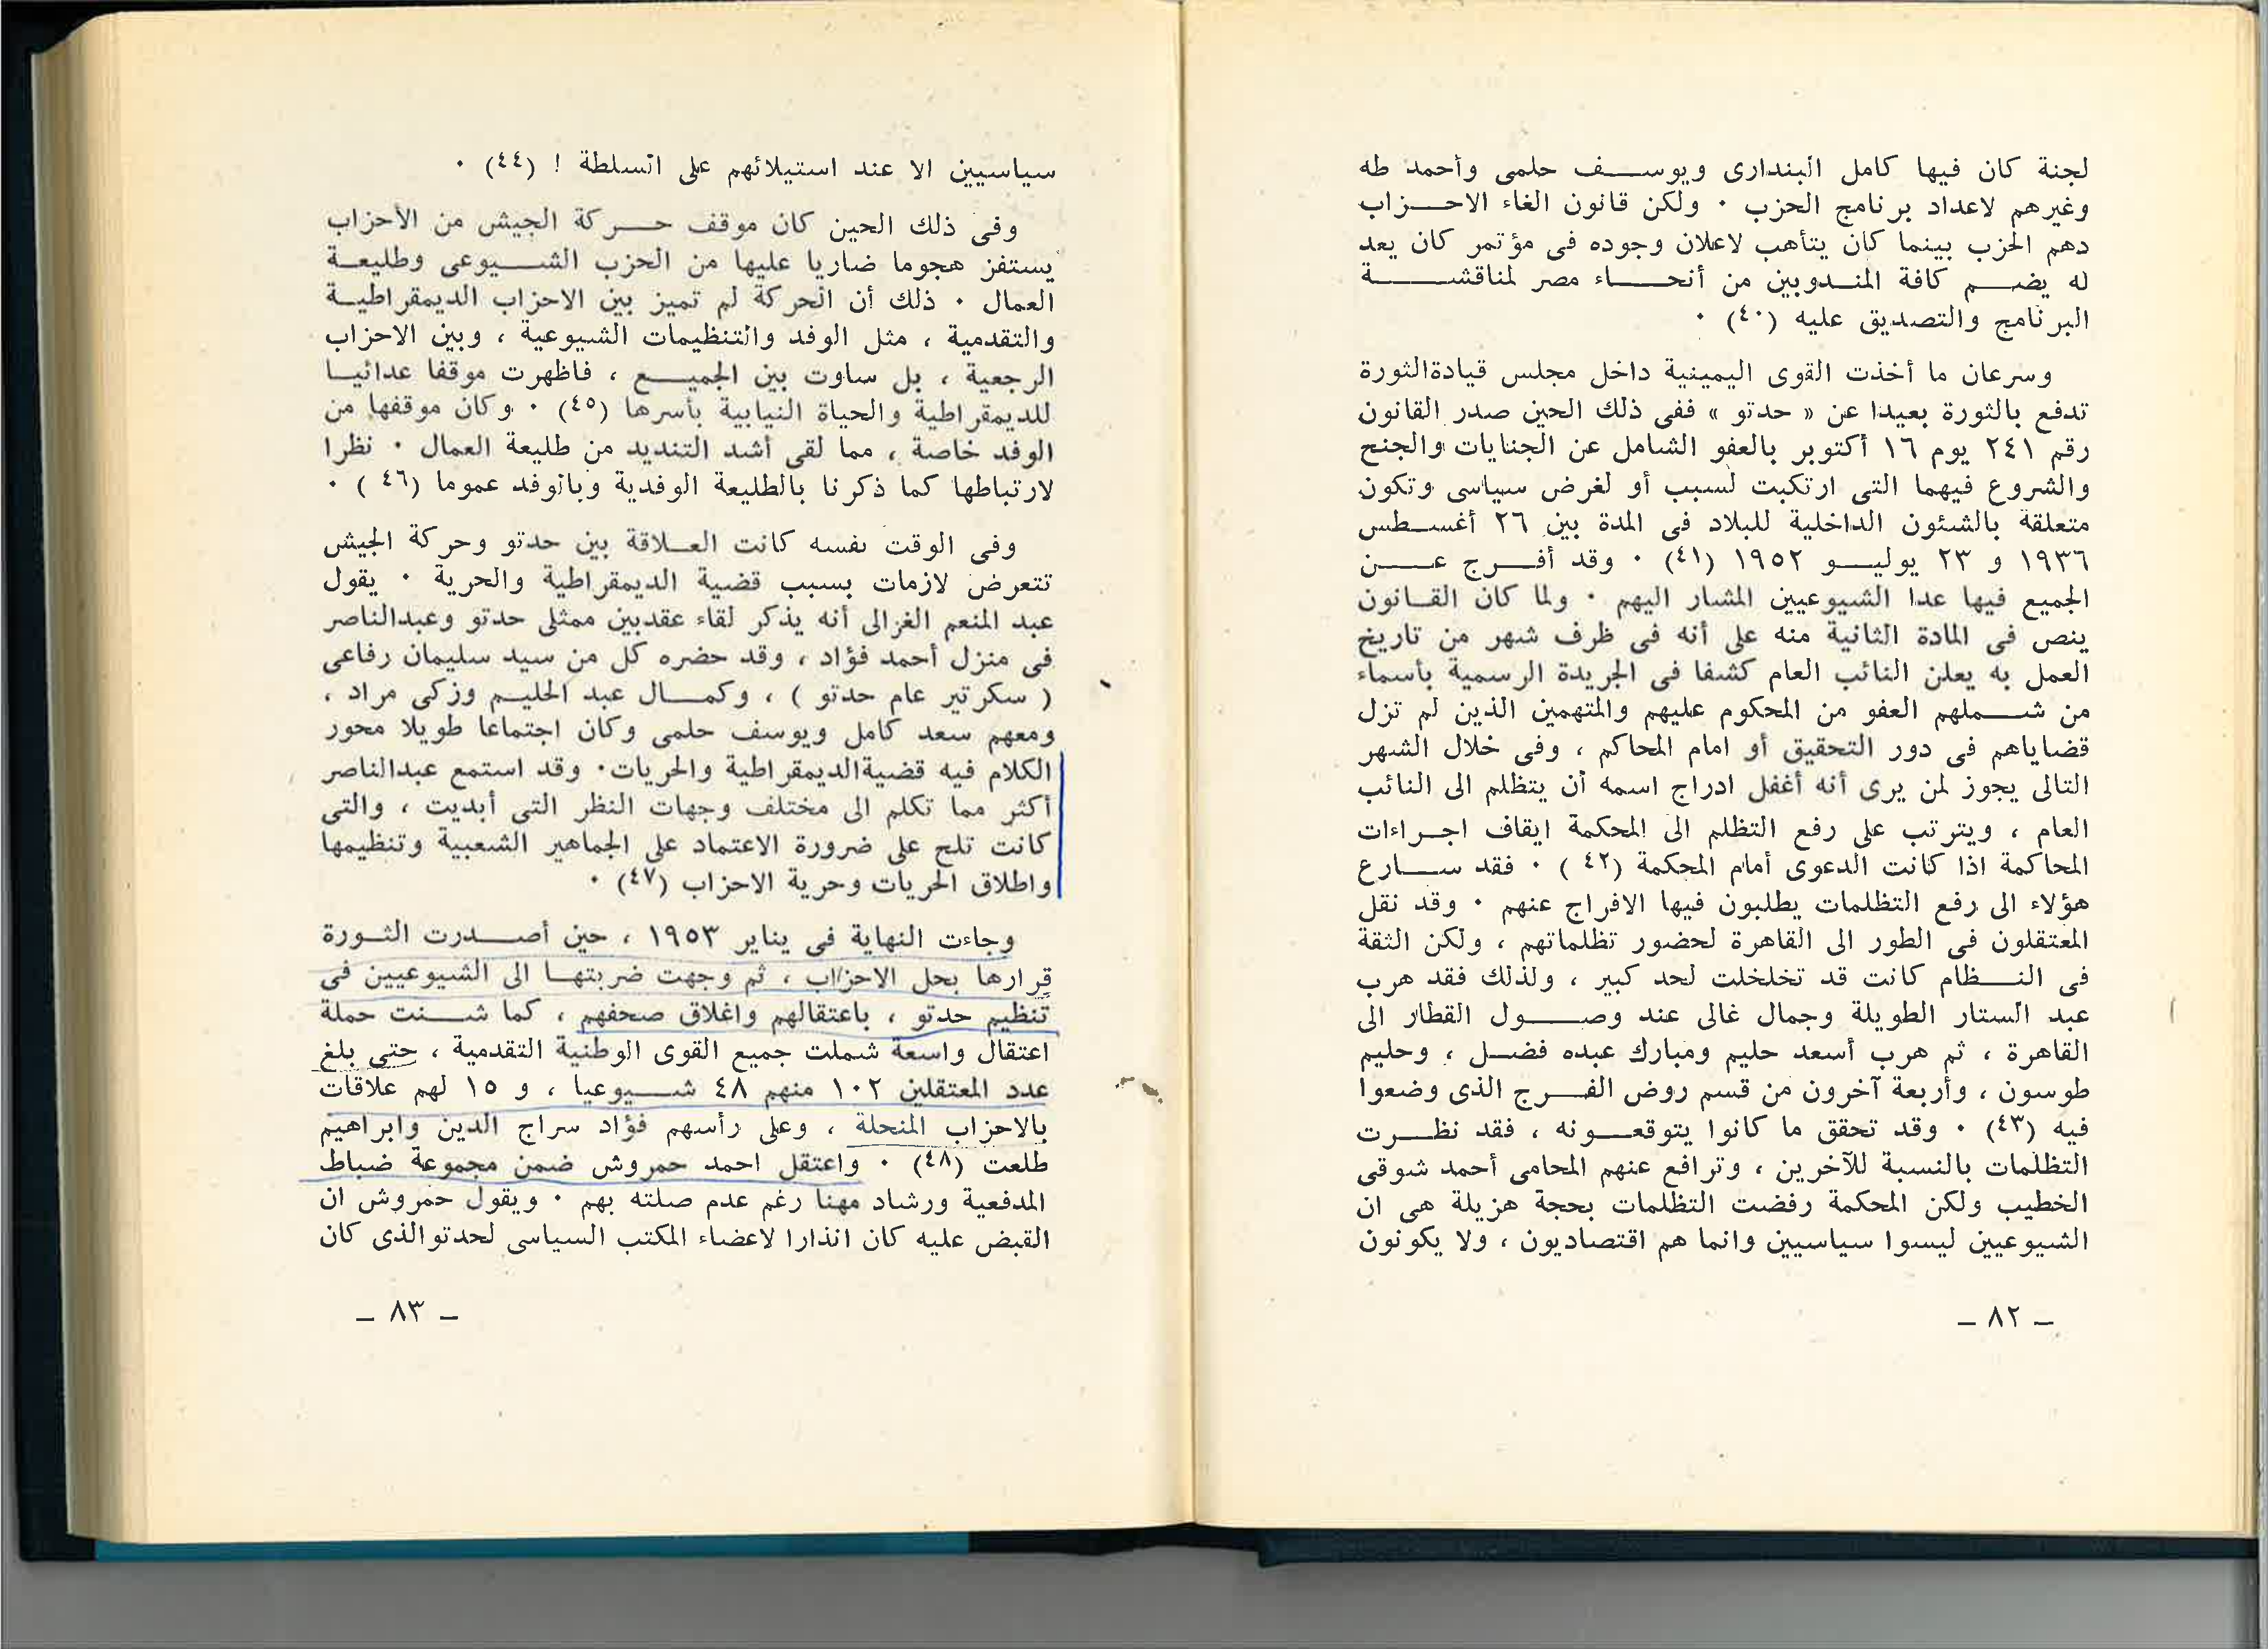 لجنة كان فيها كامل البندارى ويوسف حلمى وأحمد طه
وغيرهم لاعداد برنامج الحزب ٠ ولكن قانون الغاء الاحزاب
دهم الحزب بينما كان يتأهب لاعلان وجوده فى مؤتمر كان يعد
له يضم كافة المندوبين من أنحاء مصر لمناقشة
البرنامج والتصديق عليه (٤٠) ٠
وسرعان ما أخذت القوى اليمينية داخل مجلس قيادةالثورة
تدفع بالثورة بعيدا عن « حدتو » ففى ذلك الحين صدر القانون
رقم ٢٤١ يوم ١٦ أكتوبر بالعفو الشامل عن الجنايات والجنح
والشروع فيهما التى ارتكبت لسبب أو لغرض سياسى وتكون
متعلقة بالشئون الداخلية للبلاد فى المدة بين ٢٦ أغسطس
١٩٣٦ و ٢٣ يوليو ١٩٥٢ (٤١) ٠ وقد أفرج عن
الجميع فيها عدا الشيوعيين المشار اليهم ٠ ولما كان القانون
ينص فى المادة الثانية منه على أنه فى ظرف شهر من تاريخ
العمل به يعلن النائب العام كشفا فى الجريدة الرسمية بأسماء
من شملهم العفو من المحكوم عليهم والمتهمين الذين لم تزل
قضاياهم فى دور التحقيق أو امام المحاكم ، وفى خلال الشهر
التالى يجوز لمن يرى أنه أغفل ادراج اسمه أن يتظلم الى النائب
العام ، ويترتب على رفع التظلم الى المحكمة ايقاف اجراءات
المحاكمة اذا كانت الدعوى أمام المحكمة (٤٢ ) ٠ فقد سارع
هؤلاء الى رفع التظلمات يطلبون فيها الافراج عنهم ٠ وقد نقل
المعتقلون فى الطور الى القاهرة لحضور تظلماتهم ، ولكن الثقة
فى النظام كانت قد تخلخلت لحد كبير ، ولذلك فقد هرب
عبد الستار الطويلة وجمال غالى عند وصول القطار الى
القاهرة ، ثم هرب أسعد حليم ومبارك عبده فضل ، وحليم
طوسون ، وأربعة آخرون من قسم روض الفرج الذى وضعوا
فيه (٤٣) ٠ وقد تحقق ما كانوا يتوقعونه ، فقد نظرت
التظلمات بالنسبة للآخرين ، وترافع عنهم المحامى أحمد شوقى
الخطيب ولكن المحكمة رفضت التظلمات بحجة هزيلة هى ان
الشيوعيين ليسوا سياسيين وانما هم اقتصاديون ، ولا يكونون
ــ ٨٢ ــ
سياسيين الا عند استيلائهم على السلطة ! (٤٤) ٠
وفى ذلك الحين كان موقف حركة الجيش من الأحزاب
يستفز هجوما ضاريا عليها من الحزب الشيوعى وطليعة
العمال ٠ ذلك أن الحركة لم تميز بين الاحزاب الديمقراطية
والتقدمية ، مثل الوفد والتنظيمات الشيوعية ، وبين الاحزاب
الرجعية ، بل ساوت بين الجميع ، فاظهرت موقفا عدائيا
للديمقراطية والحياة النيابية بأسرها (٤٥) ٠ وكان موقفها من
الوفد خاصة ، مما لقى أشد التنديد من طليعة العمال ٠ نظرا
لارتباطها كما ذكرنا بالطليعة الوفدية وبالوفد عموما (٤٦ ) ٠
وفى الوقت نفسه كانت العلاقة بين حدتو وحركة الجيش
تتعرض لازمات بسبب قضية الديمقراطية والحرية ٠ يقول
عبد المنعم الغزالى أنه يذكر لقاء عقدبين ممثلى حدتو وعبدالناصر
فى منزل أحمد فؤاد ، وقد حضره كل من سيد سليمان رفاعى
( سكرتير عام حدتو ) ، وكمال عبد الحليم وزكى مراد ،
ومعهم سعد كامل ويوسف حلمى وكان اجتماعا طويلا محور
الكلام فيه قضيةالديمقراطية والحريات٠ وقد استمع عبدالناصر
أكثر مما تكلم الى مختلف وجهات النظر التى أبديت ، والتى
كانت تلح على ضرورة الاعتماد على الجماهير الشعبية وتنظيمها
واطلاق الحريات وحرية الاحزاب (٤٧) ٠
وجاءت النهاية فى يناير ١٩٥٣ ، حين أصدرت الثورة
قرارها بحل الاحزاب ، ثم وجهت ضربتها الى الشيوعيين فى
تنظيم حدتو ، باعتقالهم واغلاق صحفهم ، كما شنت حملة
اعتقال واسعة شملت جميع القوى الوطنية التقدمية ، حتى بلغ
عدد المعتقلين ١٠٢ منهم ٤٨ شيوعيا ، و ١٥ لهم علاقات
بالاحزاب المنحلة ، وعلى رأسهم فؤاد سراج الدين وابراهيم
طلعت (٤٨) ٠ واعتقل احمد حمروش ضمن مجموعة ضباط
المدفعية ورشاد مهنا رغم عدم صلته بهم ٠ ويقول حمروش ان
القبض عليه كان انذارا لاعضاء المكتب السياسى لحدتوالذى كان
ــ ٨٣ ــ